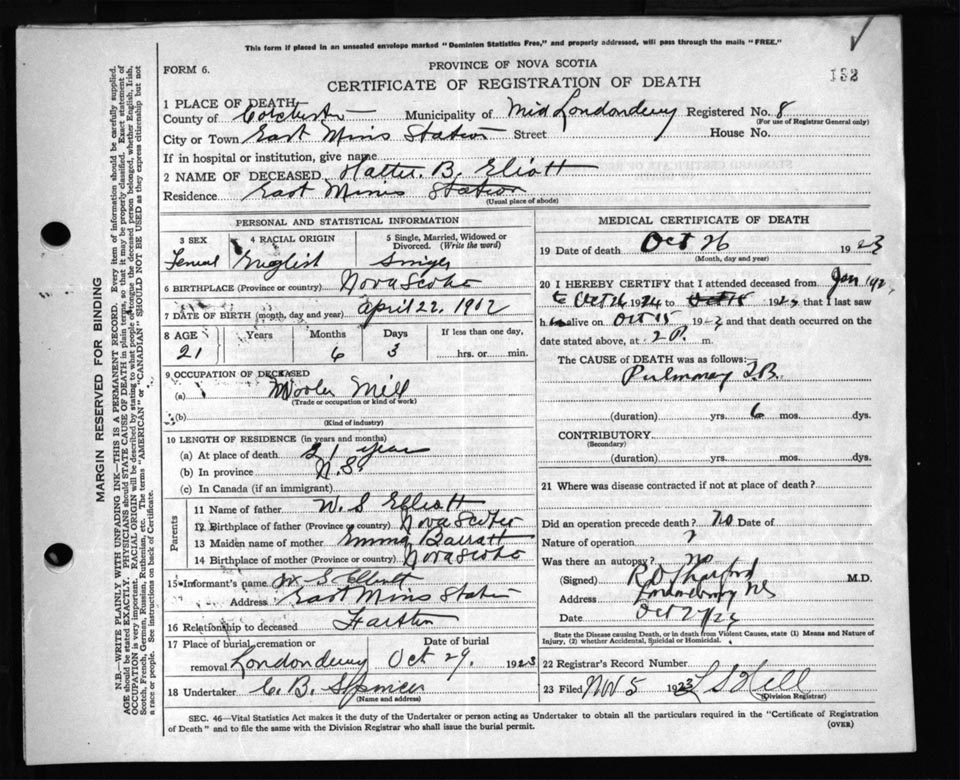 This form if placed in an unsealed envelope marked "Dominion Statistics Free," and properly addressed, will pass through the mails "FREE."
FORM 6.
PROVINCE OF NOVA SCOTIA
CERTIFICATE OF REGISTRATION OF DEATH
1 PLACE OF DEATH
County of Colchester Municipality of Mid Londonderry Registered No. 8
(For use of Registrar General only)
City or Town East Mines Station Street House No.
If in hospital or institution, give name
2 NAME OF DECEASED B. Eliott
Residence East Mines Station
(Usual place of abode)
PERSONAL AND STATISTICAL INFORMATION
3 SEX 4 RACIAL ORIGIN 5 Single, Married, Widowed or Divorced. (Write the word)
English
6 BIRTHPLACE (Province or country) Nova Scotia
7 DATE OF BIRTH (month, day and year) April 22, 1902
8 AGE Years Months Days If less than one day,
21 6 3 hrs. or min.
9 OCCUPATION OF DECEASED
(a) Woolen Mill
(Trade or occupation or kind of work)
(b)
(Kind of industry)
10 LENGTH OF RESIDENCE (in years and months)
(a) At place of death 21 year
(b) In province N.S.
(c) In Canada (if an immigrant)
Parents
11 Name of father W. S Elliott
12 Birthplace of father (Province or country) Nova Scotia
13 Maiden name of mother Emma Barratt
14 Birthplace of mother (Province or country) Nova Scotia
15 Informant's name W. S Elliott
Address East Mines Station
16 Relationship to deceased
17 Place of burial, cremation or removal Londonderry Date of burial Oct 29, 1923
18 Undertaker C. B. Spencer
(Name and address)
MEDICAL CERTIFICATE OF DEATH
19 Date of death Oct 26 1923
(Month, day and year)
20 I HEREBY CERTIFY that I attended deceased from Jan 192
to Oct 192 to Oct 192 that I last saw
h alive on Oct 15 192 and that death occurred on
date stated above, at 2 P. m.
The CAUSE of DEATH was as follows:
Pulmonary T.B.
(duration) yrs. 6 mos. dys.
CONTRIBUTORY
(Secondary)
(duration) yrs. mos. dys.
21 Where was disease contracted if not at place of death?
Did an operation precede death? No Date of
Nature of operation ?
Was there an autopsy? No
(Signed) R. D. M.D.
Address Londonderry NS
Date Oct 27/23
State the Disease causing Death, or in death from Violent Causes, state (1) Means and Nature of Injury, (2) whether Accidental, Suicidal or Homicidal.
22 Registrar's Record Number
23 Filed Nov 5 1923 L S Hill
(Division Registrar)
SEC. 46—Vital Statistics Act makes it the duty of the Undertaker or person acting as Undertaker to obtain all the particulars required in the "Certificate of Registration
of Death" and to file the same with the Division Registrar who shall issue the burial permit.
(OVER)
MARGIN RESERVED FOR BINDING
N.B.—WRITE PLAINLY WITH UNFADING INK—THIS IS A PERMANENT RECORD. Every item of information should be carefully supplied.
AGE should be stated EXACTLY. PHYSICIANS should STATE CAUSE OF DEATH in plain terms, so that it may be properly classified. Exact statement of
OCCUPATION is very important. RACIAL ORIGIN will be described by stating to what people or tongue the deceased person belonged, whether English, Irish,
Scotch, French, German, Russian, Ruthenian, etc. The terms "AMERICAN" or "CANADIAN" SHOULD NOT BE USED as they express citizenship but not
a race or people. See instructions on back of Certificate.